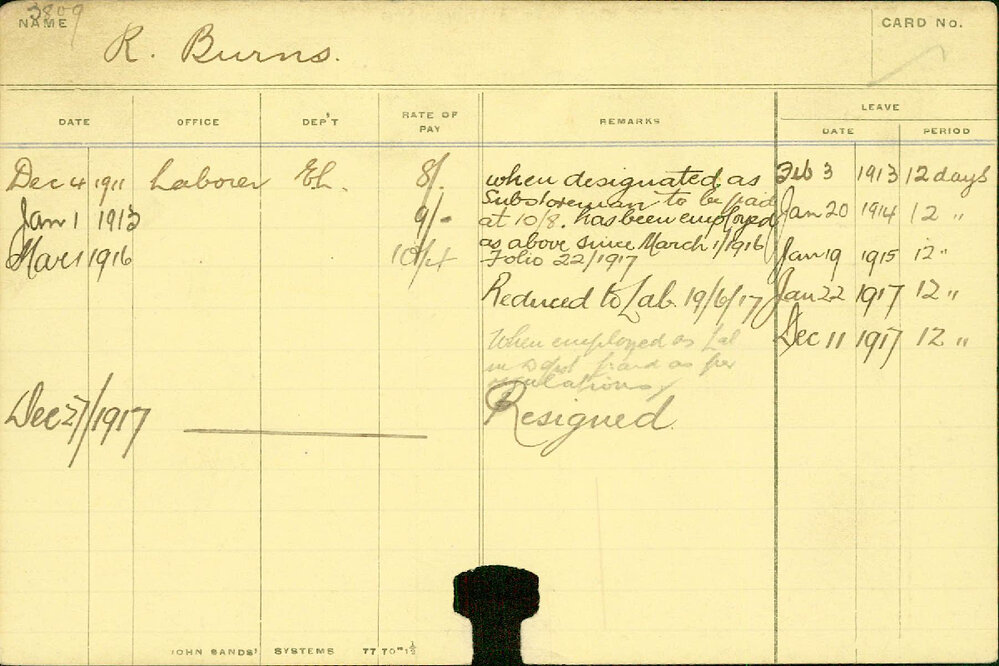 3809
NAME
R. Burns.
CARD No.
DATE OFFICE DEP'T RATE OF PAY REMARKS LEAVE
DATE PERIOD
Dec 4 1911 Laborer 8/. when designated as Feb 3 1913 12 days
Jan 1 1913 9/- Substoreman to be paid
at 10/8. has been employed Jan 20 1914 12 "
Mar 1 1916 10/4 as above since March 1/1916
Folio 22/1917 Jan 19 1915 12 "
Reduced to Lab 19/6/17 Jan 22 1917 12 "
When employed as Lab Dec 11 1917 12 "
in paid as per
regulations
Dec 27/1917 Resigned.
JOHN SANDS' SYSTEMS 77 70